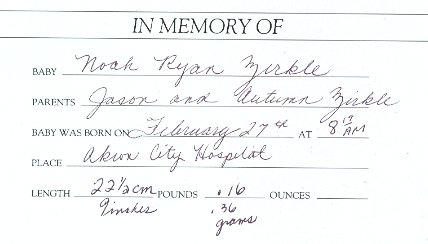 IN MEMORY OF
BABY Noah Ryan Zirkle
PARENTS Jason and Autumn Zirkle
BABY WAS BORN ON February 27th AT 8 13 AM
PLACE Akron City Hospital
LENGTH 22 1/2 cm POUNDS .16 OUNCES
9 inches .36
grams